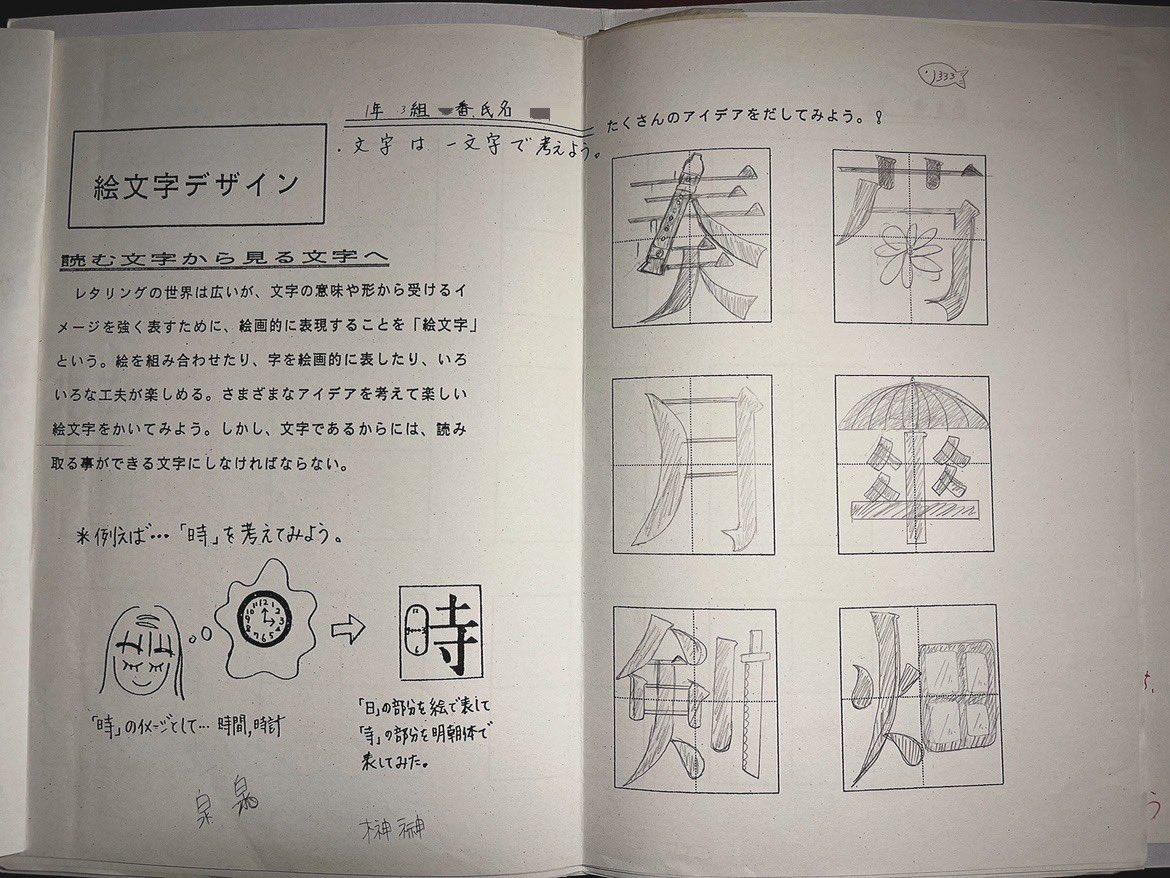 1年 3組 番 氏名
・文字は一文字で考えよう。
絵文字デザイン
読む文字から見る文字へ
レタリングの世界は広いが、文字の意味や形から受けるイ
メージを強く表すために、絵画的に表現することを「絵文字」
という。絵を組み合わせたり、字を絵画的に表したり、いろ
いろな工夫が楽しめる。さまざまなアイデアを考えて楽しい
絵文字をかいてみよう。しかし、文字であるからには、読み
取る事ができる文字にしなければならない。
*例えば…「時」を考えてみよう。
11 12 1
10 2
9 3
8 4
7 6 5
時
「時」のイメージとして… 時間,時計
「日」の部分を絵で表して
「寺」の部分を明朝体で
表してみた。
泉
榊 神
333
たくさんのアイデアをだしてみよう。!
奏
月 傘
畑